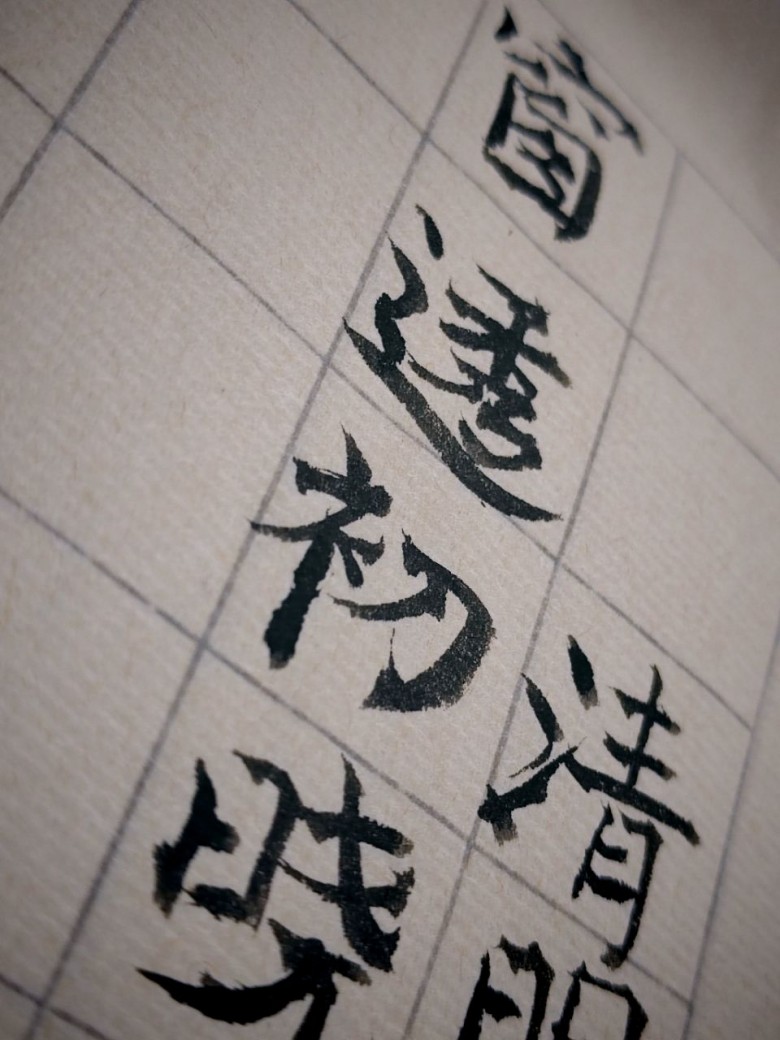 清明
窗透初晓